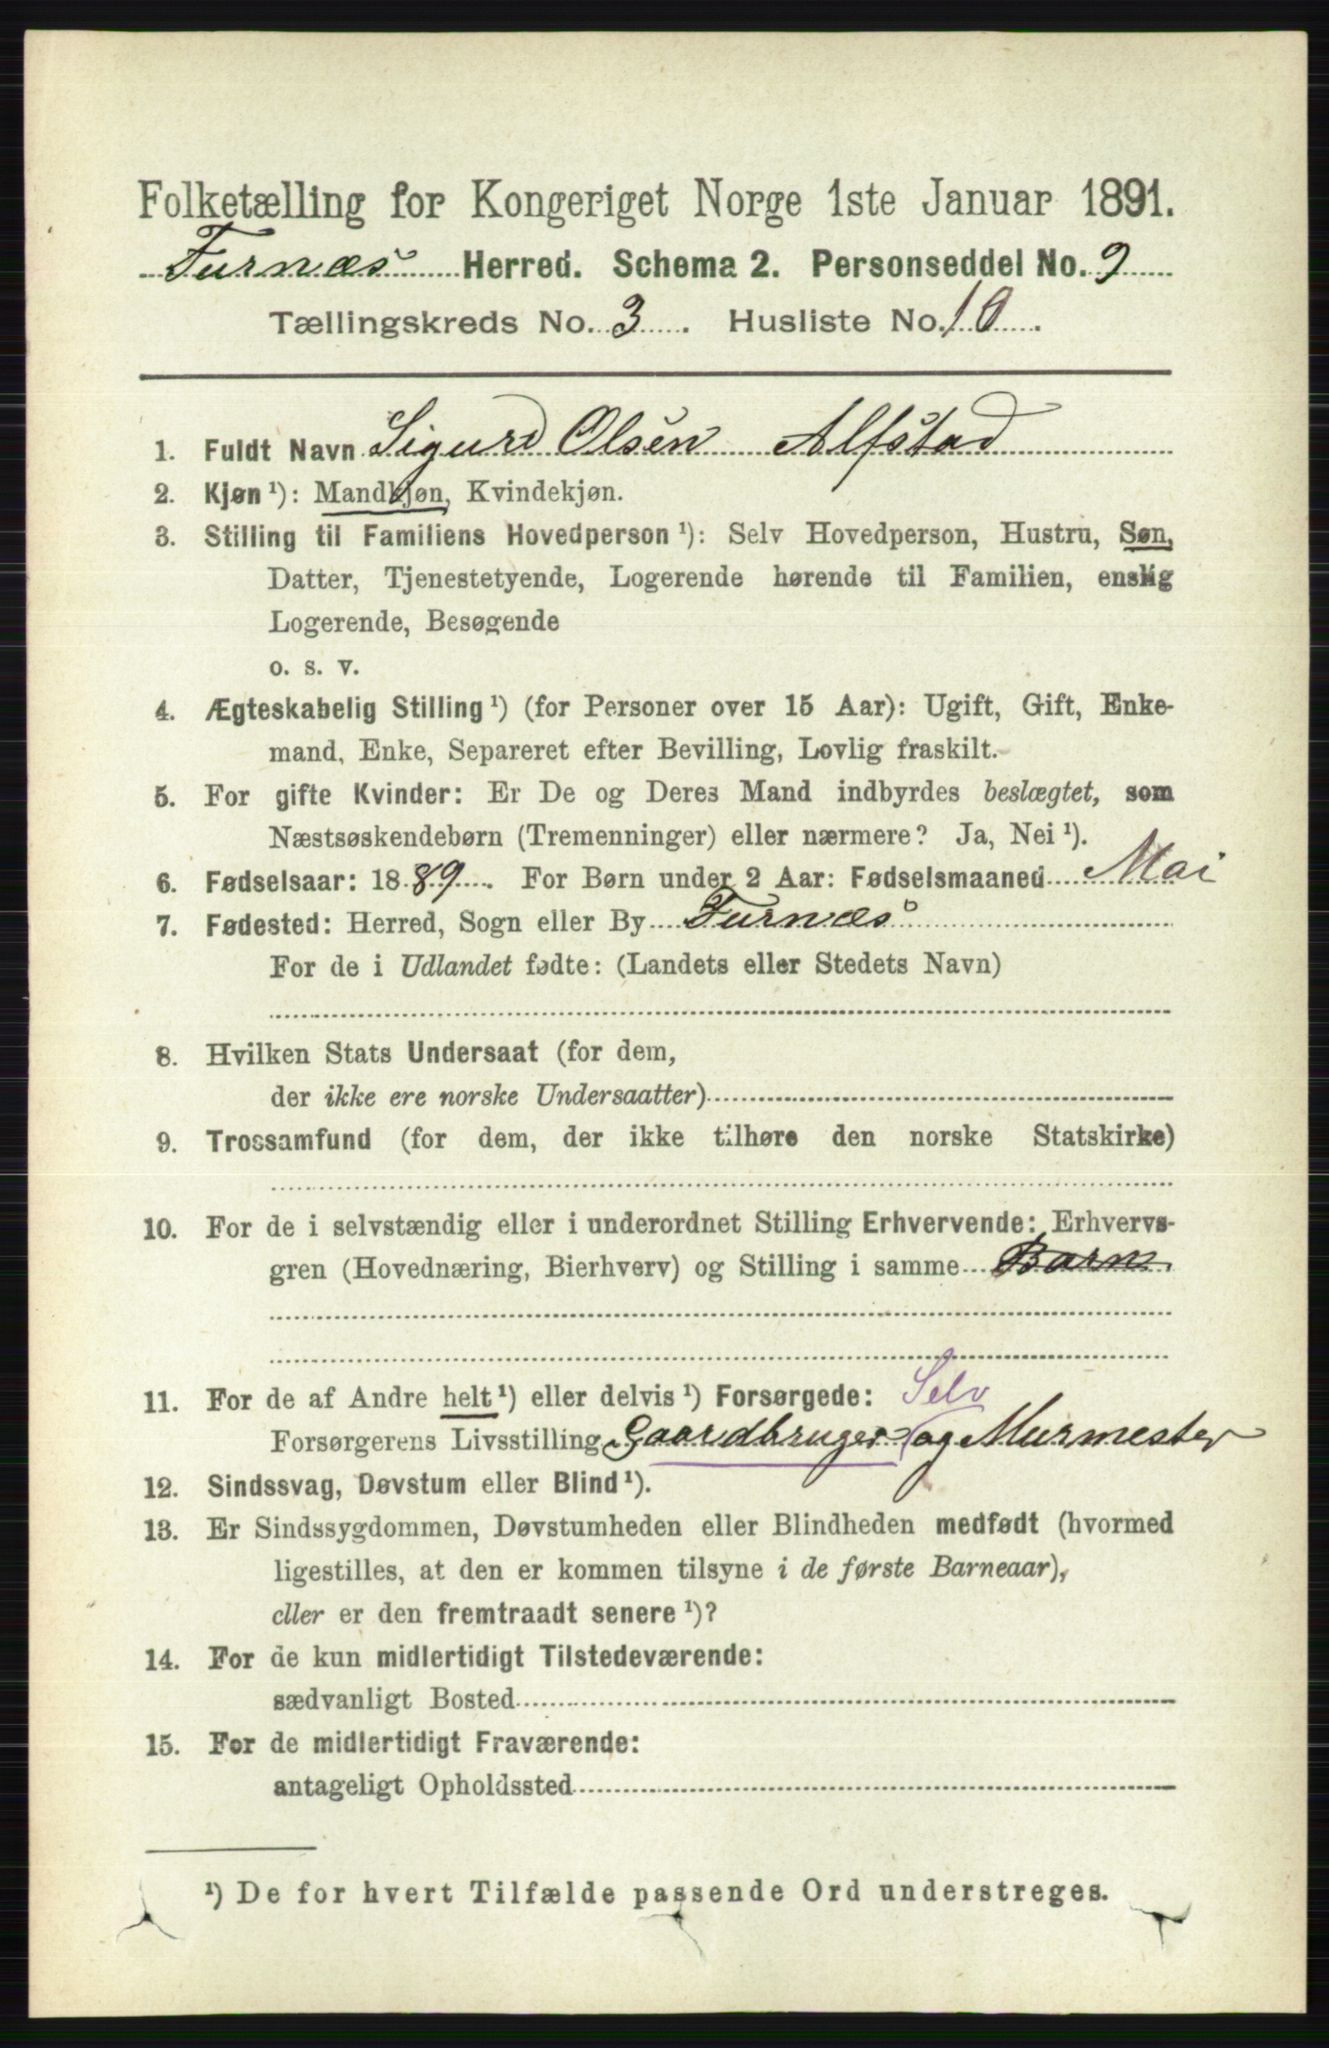 Folketælling for Kongeriget Norge 1ste Januar 1891.
Furnæs Herred. Schema 2. Personseddel No. 9
Tællingskreds No. 3. Husliste No. 10.
1. Fuldt Navn Sigurd Olsen Alfstad
2. Kjøn ¹): Mandkjøn, Kvindekjøn.
3. Stilling til Familiens Hovedperson ¹): Selv Hovedperson, Hustru, Søn,
Datter, Tjenestetyende, Logerende hørende til Familien, enslig
Logerende, Besøgende
o. s. v.
4. Ægteskabelig Stilling ¹) (for Personer over 15 Aar): Ugift, Gift, Enke-
mand, Enke, Separeret efter Bevilling, Lovlig fraskilt.
5. For gifte Kvinder: Er De og Deres Mand indbyrdes beslægtet, som
Næstsøskendebørn (Tremenninger) eller nærmere? Ja, Nei ¹).
6. Fødselsaar: 1889. For Børn under 2 Aar: Fødselsmaaned Mai
7. Fødested: Herred, Sogn eller By Furnæs
For de i Udlandet fødte: (Landets eller Stedets Navn)
8. Hvilken Stats Undersaat (for dem,
der ikke ere norske Undersaatter)
9. Trossamfund (for dem, der ikke tilhøre den norske Statskirke)
10. For de i selvstændig eller i underordnet Stilling Erhvervende: Erhvervs-
gren (Hovednæring, Bierhverv) og Stilling i samme Barn
11. For de af Andre helt ¹) eller delvis ¹) Forsørgede: Selv
Forsørgerens Livsstilling Gaardbruger og Murmester
12. Sindssvag, Døvstum eller Blind ¹).
13. Er Sindssygdommen, Døvstumheden eller Blindheden medfødt (hvormed
ligestilles, at den er kommen tilsyne i de første Barneaar),
eller er den fremtraadt senere ¹)?
14. For de kun midlertidigt Tilstedeværende:
sædvanligt Bosted
15. For de midlertidigt Fraværende:
antageligt Opholdssted
¹) De for hvert Tilfælde passende Ord understreges.